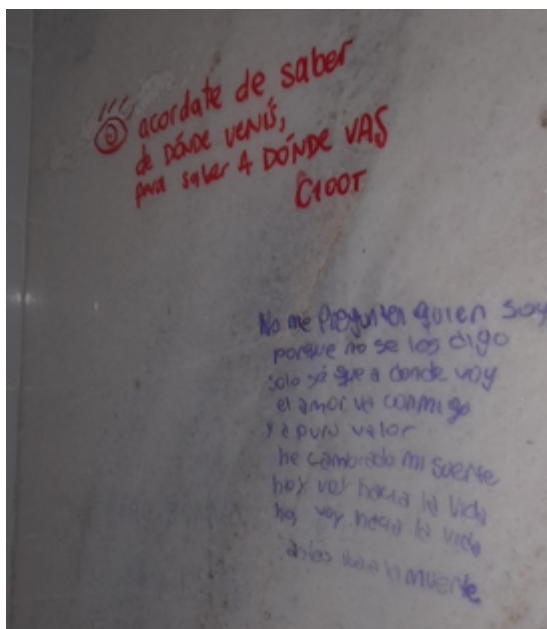 acordate de saber
de DÓNDE VENÍS,
para saber A DÓNDE VAS
No me Pregunten quien soy
porque no se los digo
solo sé que a donde voy
el amor va conmigo
y a puro valor
he cambiado mi suerte
hoy voy hacia la vida
hoy voy hacia la vida
antes iba a la muerte